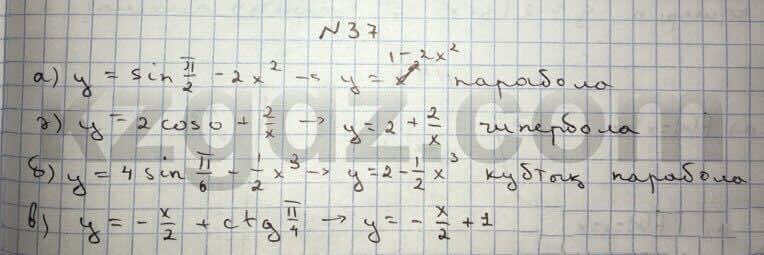 №37
а) y = sin π/2 - 2x² → y = 1-2x² парабола
г) y = 2 cos 0 + 2/x → y = 2 + 2/x гипербола
б) y = 4 sin π/6 - 1/2 x³ → y = 2 - 1/2 x³ кубтық парабола
в) y = - x/2 + ctg π/4 → y = - x/2 + 1
kzgdz.com